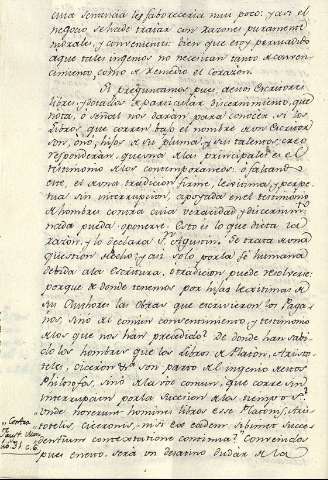 cuia sentencia les faboreceria mui poco: y asi el
negocio se ha de tratar con razones puramente
naturales, y convenientes bien que estoy persuadido
a que tales ingenios no necesitan tanto de conven-
cimiento, como de remedio el corazon.
Si preguntamos pues a esos Escritores
libres, y dotados de particular discernimiento, que
nota, ó señal nos daran para conocer si los
Libros que corren bajo el nombre de un Escritor
son, ó no, hijos de su pluma, y sus talentos, creo
responderán, que una de las principales es el
testimonio de los contemporaneos: ó faltando
este, el de una tradicion firme, y perpe-
tua sin interrupcion, apoyada en el testimonio
de hombres contra cuia veracidad y discernim.to
nada pueda oponerse. Esto es lo que dicta la
razon, y lo declara S.n Agustin. Se trata de una
question de hecho: y asi solo por la fe humana
debida a la Escritura, ó tradicion puede resolverse:
porque de donde tenemos por hijas lexitimas de
sus Authores las Obras que escrivieron los Paga-
nos, sinó del comun consentimiento, y testimonio
de los que nos han precedido? de donde han sabi-
do los hombres que los libros de Platon, Aristo-
teles, Ciceron &a son parto del ingenio de estos
Philosofos, sinó de la voz comun, que corre sin
interrupcion por la succesion de los tiempos?
"Unde noverunt homines libros esse Platonis, Aris-
totelis, Ciceronis, nisi ex eadem sibimet succe-
dentium contextatione continua? Convenidos
pues en esto, será un desatino dudar de la
"Contra
Faust.
lib. 31. c. 6.